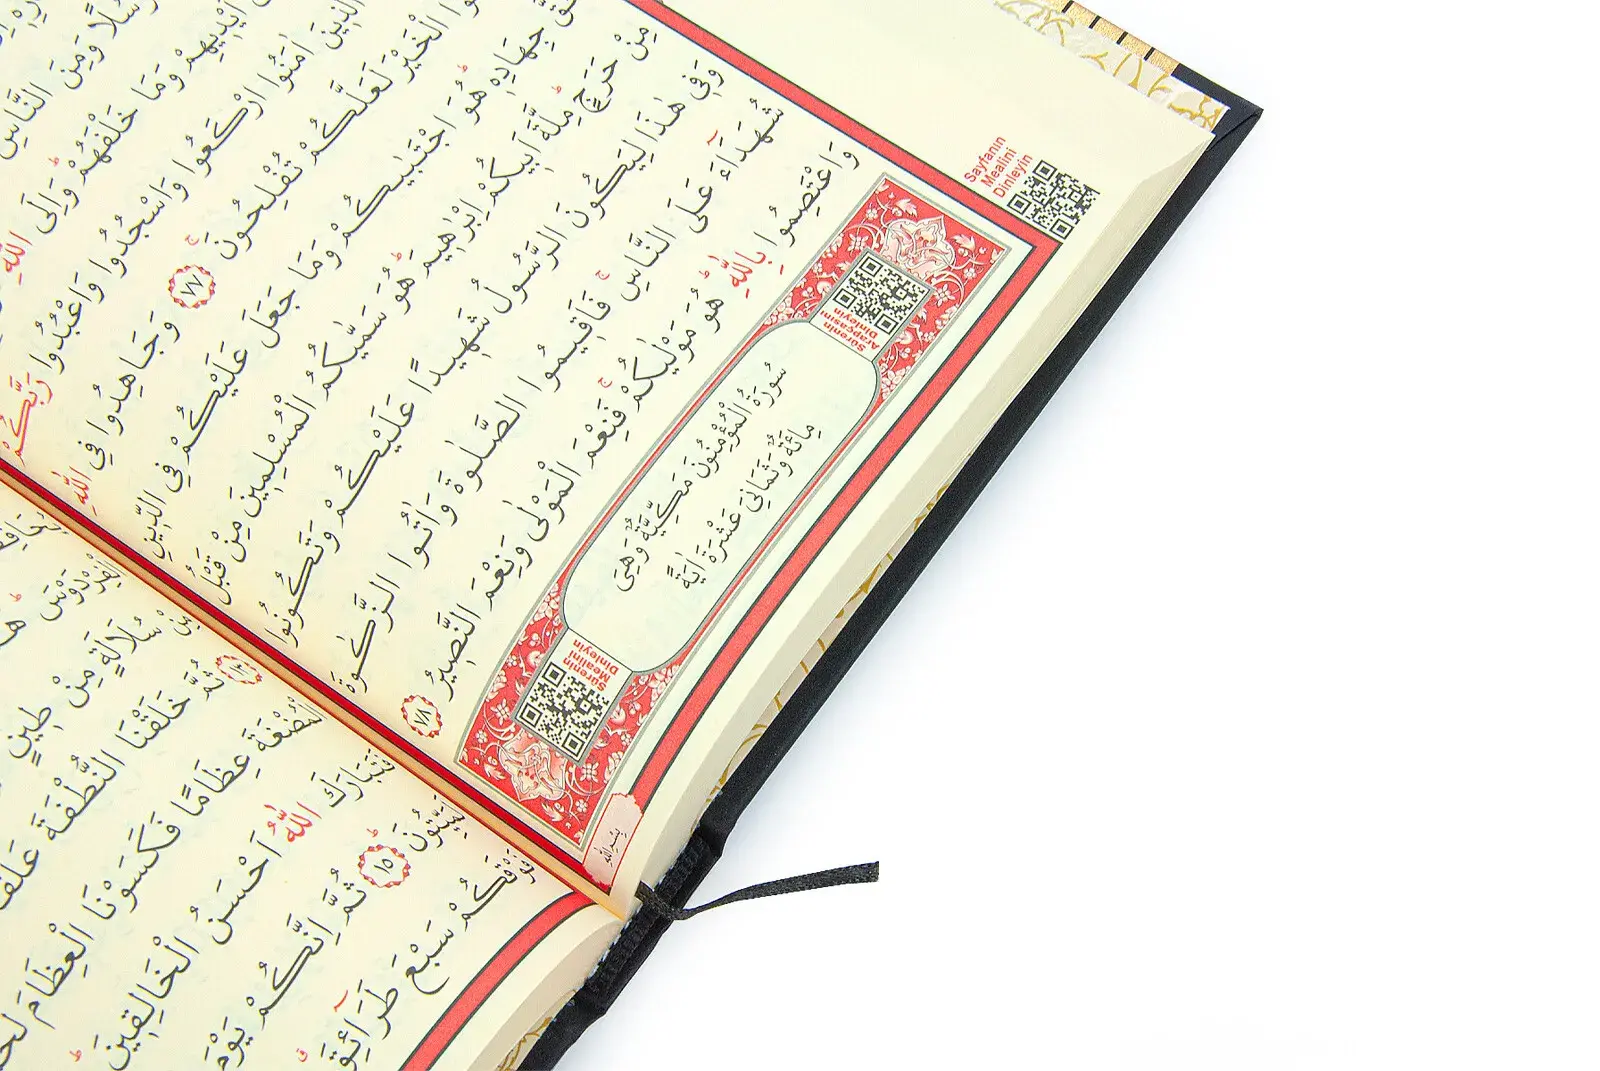 رُسُلًا وَمِنَ النَّاسِ
اَيْدِيهِمْ وَمَا خَلْفَهُمْ وَاِلَى اللّٰهِ
الَّذِينَ اٰمَنُوا ارْكَعُوا وَاسْجُدُوا وَاعْبُدُوا رَبَّكُمْ
الْخَيْرَ لَعَلَّكُمْ تُفْلِحُونَ ﴿٧٧﴾ وَجَاهِدُوا فِي اللّٰهِ
حَقَّ جِهَادِهِ هُوَ اجْتَبٰيكُمْ وَمَا جَعَلَ عَلَيْكُمْ فِي الدِّينِ
مِنْ حَرَجٍ مِلَّةَ اَبِيكُمْ اِبْرٰهِيمَ هُوَ سَمّٰيكُمُ الْمُسْلِمِينَ مِنْ قَبْلُ
وَفِي هٰذَا لِيَكُونَ الرَّسُولُ شَهِيدًا عَلَيْكُمْ وَتَكُونُوا
شُهَدَآءَ عَلَى النَّاسِ فَاَقِيمُوا الصَّلٰوةَ وَاٰتُوا الزَّكٰوةَ
وَاعْتَصِمُوا بِاللّٰهِ هُوَ مَوْلٰيكُمْ فَنِعْمَ الْمَوْلٰى وَنِعْمَ النَّصِيرُ ﴿٧٨﴾
Sayfanin
Mealini
Dinleyin
Sûrenin
Arapçasını
Dinleyin
سُورَةُ الْمُؤْمِنُونَ مَكِّيَّةٌ وَهِيَ
مِائَةٌ وَثَمَانِيَ عَشْرَةَ اٰيَةً
Sûrenin
Mealini
Dinleyin
بِسْمِ اللّٰهِ
الْفِرْدَوْسَ هُمْ
مِنْ سُلَالَةٍ مِنْ طِينٍ
ثُمَّ خَلَقْنَا النُّطْفَةَ عَلَقَةً
الْمُضْغَةَ عِظَامًا فَكَسَوْنَا الْعِظَامَ لَحْمًا
فَتَبَارَكَ اللّٰهُ اَحْسَنُ الْخَالِقِينَ
﴿١٥﴾ ثُمَّ اِنَّكُمْ يَوْمَ
فَوْقَكُمْ سَبْعَ طَرَآئِقَ